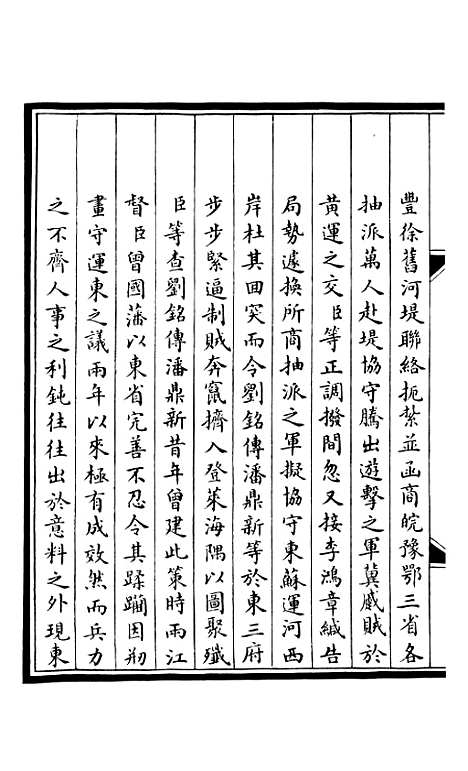 豐徐舊河堤聯絡扼紮並函商皖豫鄂三省各
抽派萬人赴堤協守騰出遊擊之軍冀蹙賊於
黃運之交臣等正調撥間忽又接李鴻章緘告
局勢遽換所商抽派之軍擬協守東蘇運河西
岸杜其回突而令劉銘傳潘鼎新等於東三府
步步緊逼制賊奔竄擠入登萊海隅以圖聚殲
臣等查劉銘傳潘鼎新昔年曾建此策時兩江
督臣曾國藩以東省完善不忍令其蹂躪因刱
畫守運東之議兩年以來極有成效然而兵力
之不齊人事之利鈍往往出於意料之外現東